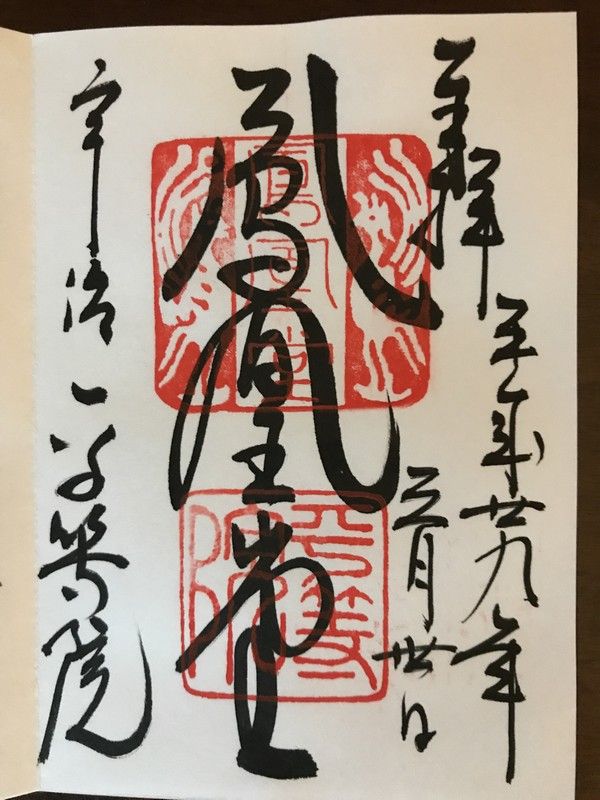 奉拝
平成廿九年
三月卅日
鳳凰堂
宇治 平等院
鳳凰堂
平等院